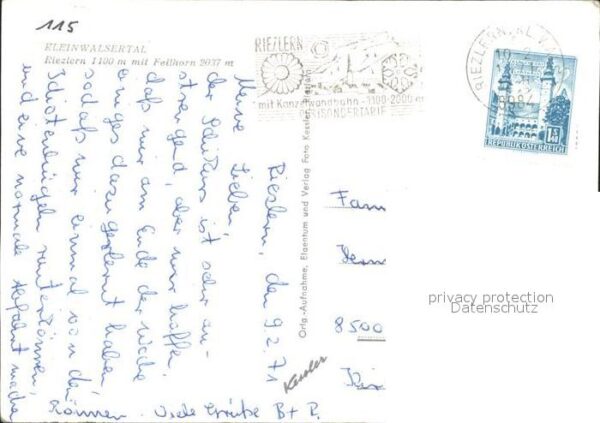 115
KLEINWALSERTAL
Riezlern 1100 m mit Fellhorn 2037 m
RIEZLERN
mit Kanzelwandbahn - 1100-2000 m
RIEZLERN
6984
1.50
REPUBLIK ÖSTERREICH
Orig.-Aufnahme, Eigentum und Verlag Foto Kessler, Riezlern
Riezlern, den 9.2.71
Meine Lieben,
der Schikurs ist sehr an-
strengend, aber wir hoffen,
daß wir am Ende der Woche
einiges dazugelernt haben
sodaß wir einmal von den
Idiotenhügeln runterkönnen,
und eine normale Abfahrt machen
können. Viele Grüße B + P.
Kessler
Fam
8500
privacy protection
Datenschutz